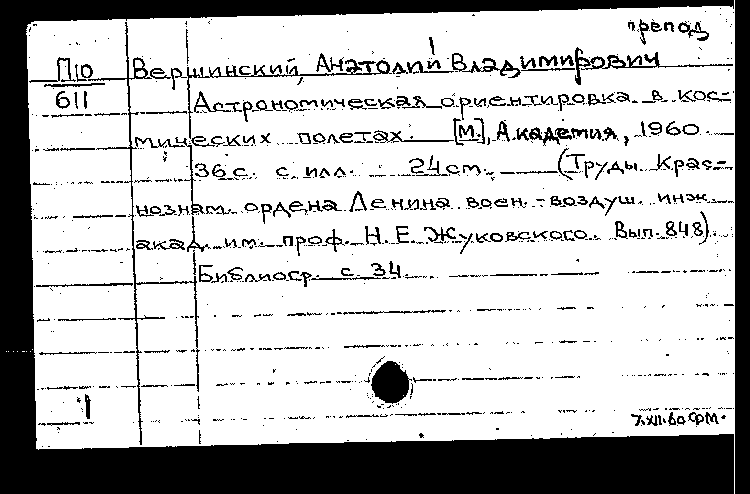 препод
П10 Вершинский, Анатолий Владимирович
611 Астрономическая ориентировка в кос-
мических полетах. [М.], Академия, 1960.
36 с. с илл. 24 см. (Труды Крас-
нознам. ордена Ленина воен.-воздуш. инж.
акад. им. проф. Н. Е. Жуковского. Вып. 848).
Библиогр. с. 34.
1
7.XII.60 ФМ.